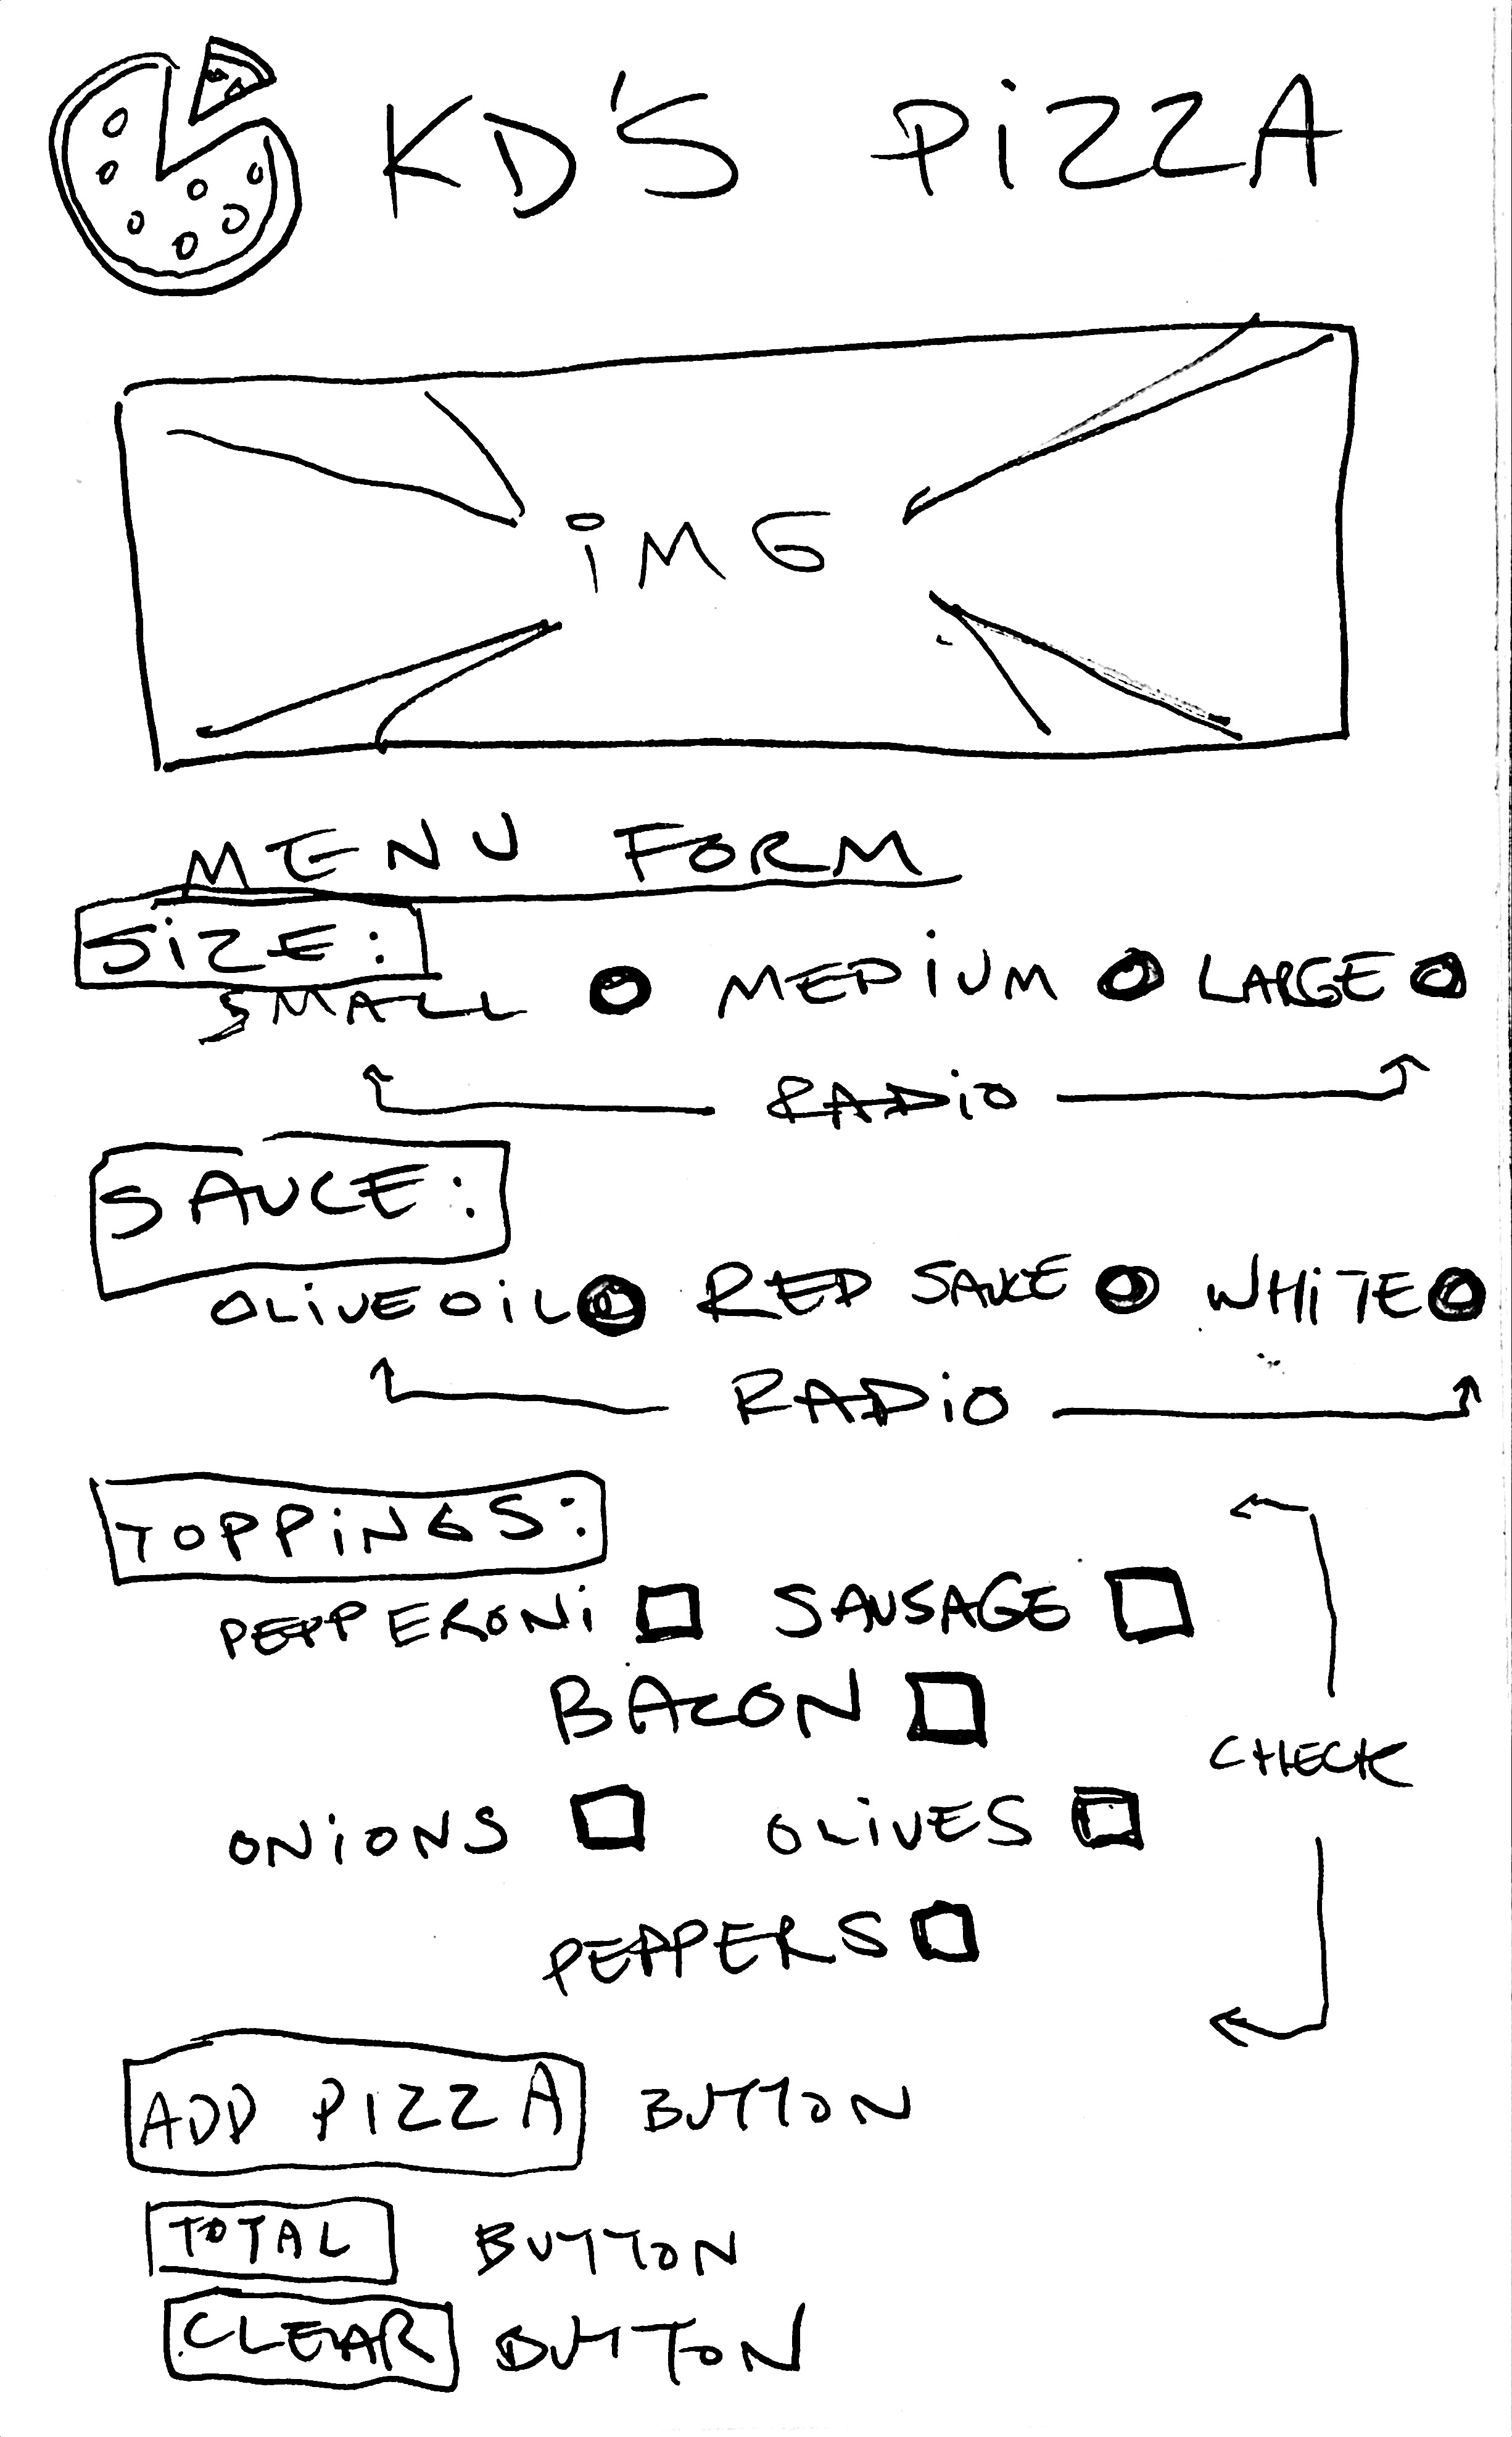 KD'S PiZZA
iMG
MENU FORM
SiZE:
SMALL MEDiUM LARGE
RADiO
SAUCE:
OLiVE OiL RED SAUCE WHiTE
RADiO
TOPPiNGS:
PEPPERONi SAUSAGE
BACON
CHECK
ONiONS OLiVES
PEPPERS
ADD PIZZA BUTTON
TOTAL BUTTON
CLEAR BUTTON